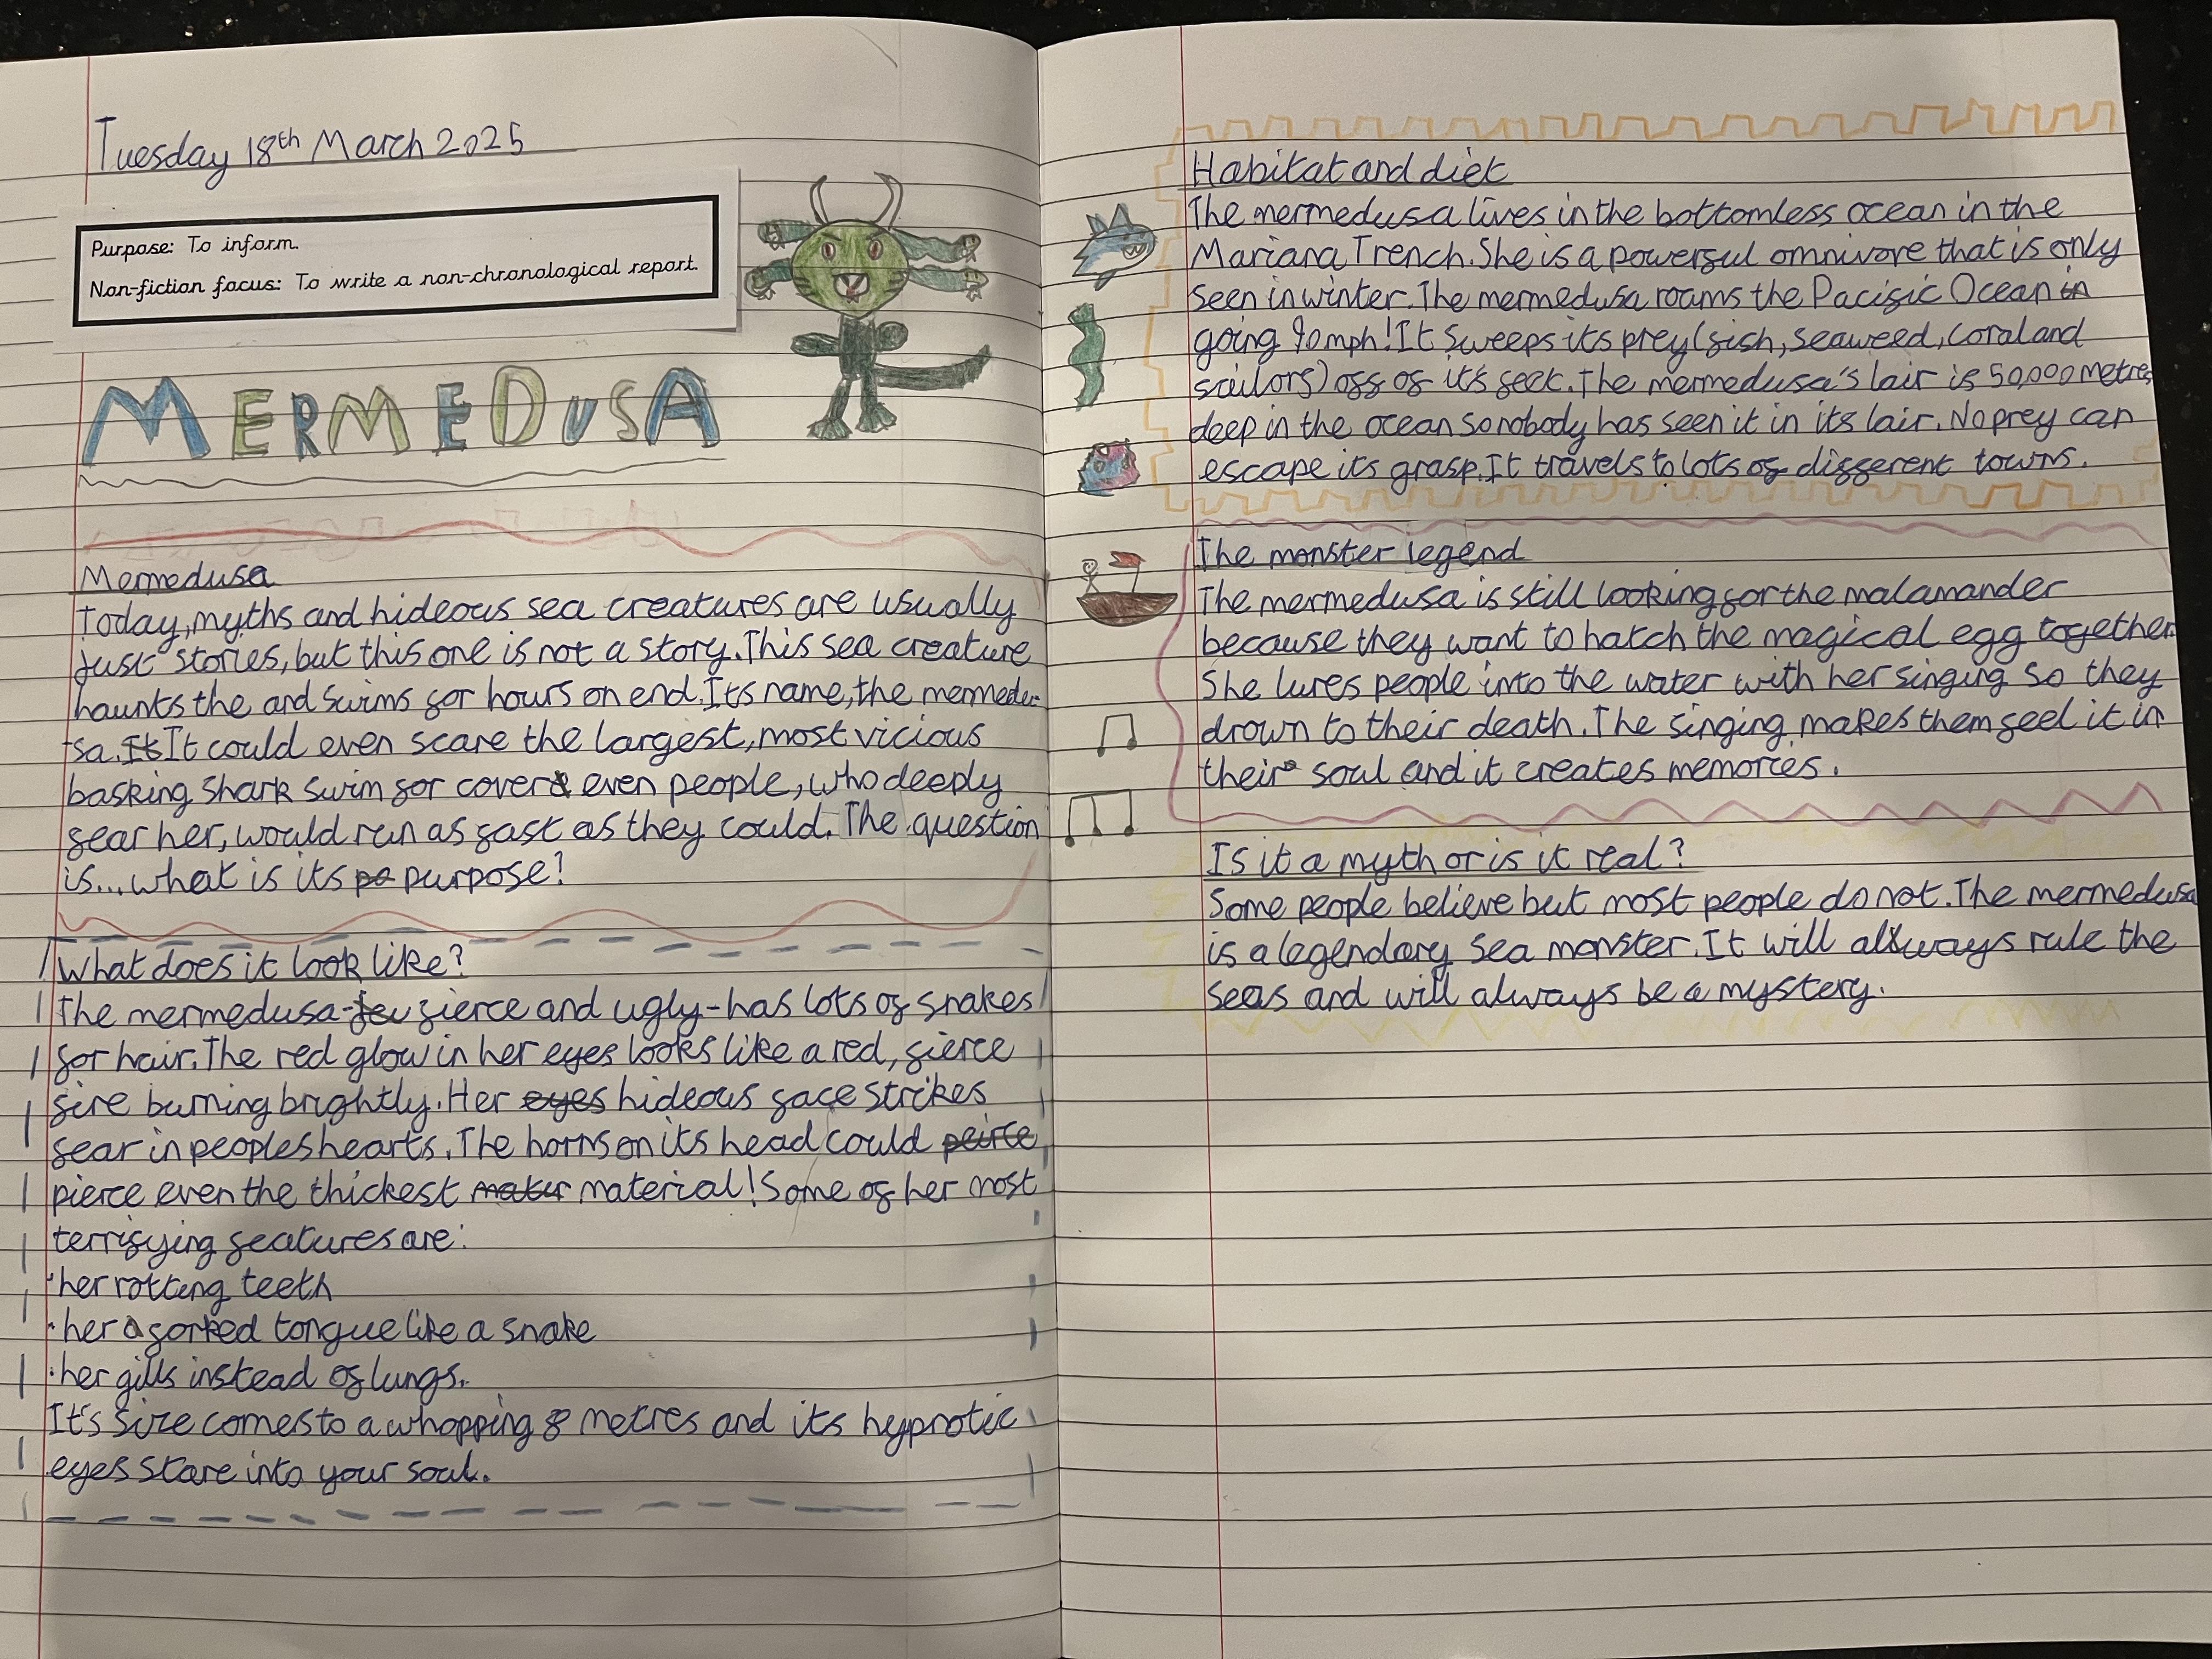 Tuesday 18th March 2025
Purpose: To inform.
Non-fiction focus: To write a non-chronological report.
MERMEDUSA
Mermedusa
Today, myths and hideous sea creatures are usually
just stories, but this one is not a story. This sea creature
haunts the and swims for hours on end. Its name, the mermedu-
sa. It It could even scare the largest, most vicious
basking shark swim for cover & even people, who deeply
fear her, would run as fast as they could. The question
is... what is its po purpose?
What does it look like?
The mermedusa - feu fierce and ugly - has lots of snakes
for hair. The red glow in her eyes looks like a red, fierce
fire burning brightly. Her eyes hideous face strikes
fear in peoples hearts. The horns on its head could peirce
pierce even the thickest mater material! Some of her most
terrifying features are:
• her rotting teeth
• her forked tongue like a snake
• her gills instead of lungs.
It's size comes to a whopping 8 metres and its hypnotic
eyes stare into your soul.
Habitat and diet
The mermedusa lives in the bottomless ocean in the
Mariana Trench. She is a powerful omnivore that is only
seen in winter. The mermedusa roams the Pacific Ocean in
going 90mph! It sweeps its prey (fish, seaweed, coral and
sailors) off of it's feet. The mermedusa's lair is 50,000 metres
deep in the ocean so nobody has seen it in its lair. No prey can
escape its grasp. It travels to lots of different towns.
The monster legend
The mermedusa is still looking for the malamander
because they want to hatch the magical egg together.
She lures people into the water with her singing so they
drown to their death. The singing makes them feel it in
their soul and it creates memories.
Is it a myth or is it real?
Some people believe but most people do not. The mermedusa
is a legendary sea monster. It will always rule the
seas and will always be a mystery.